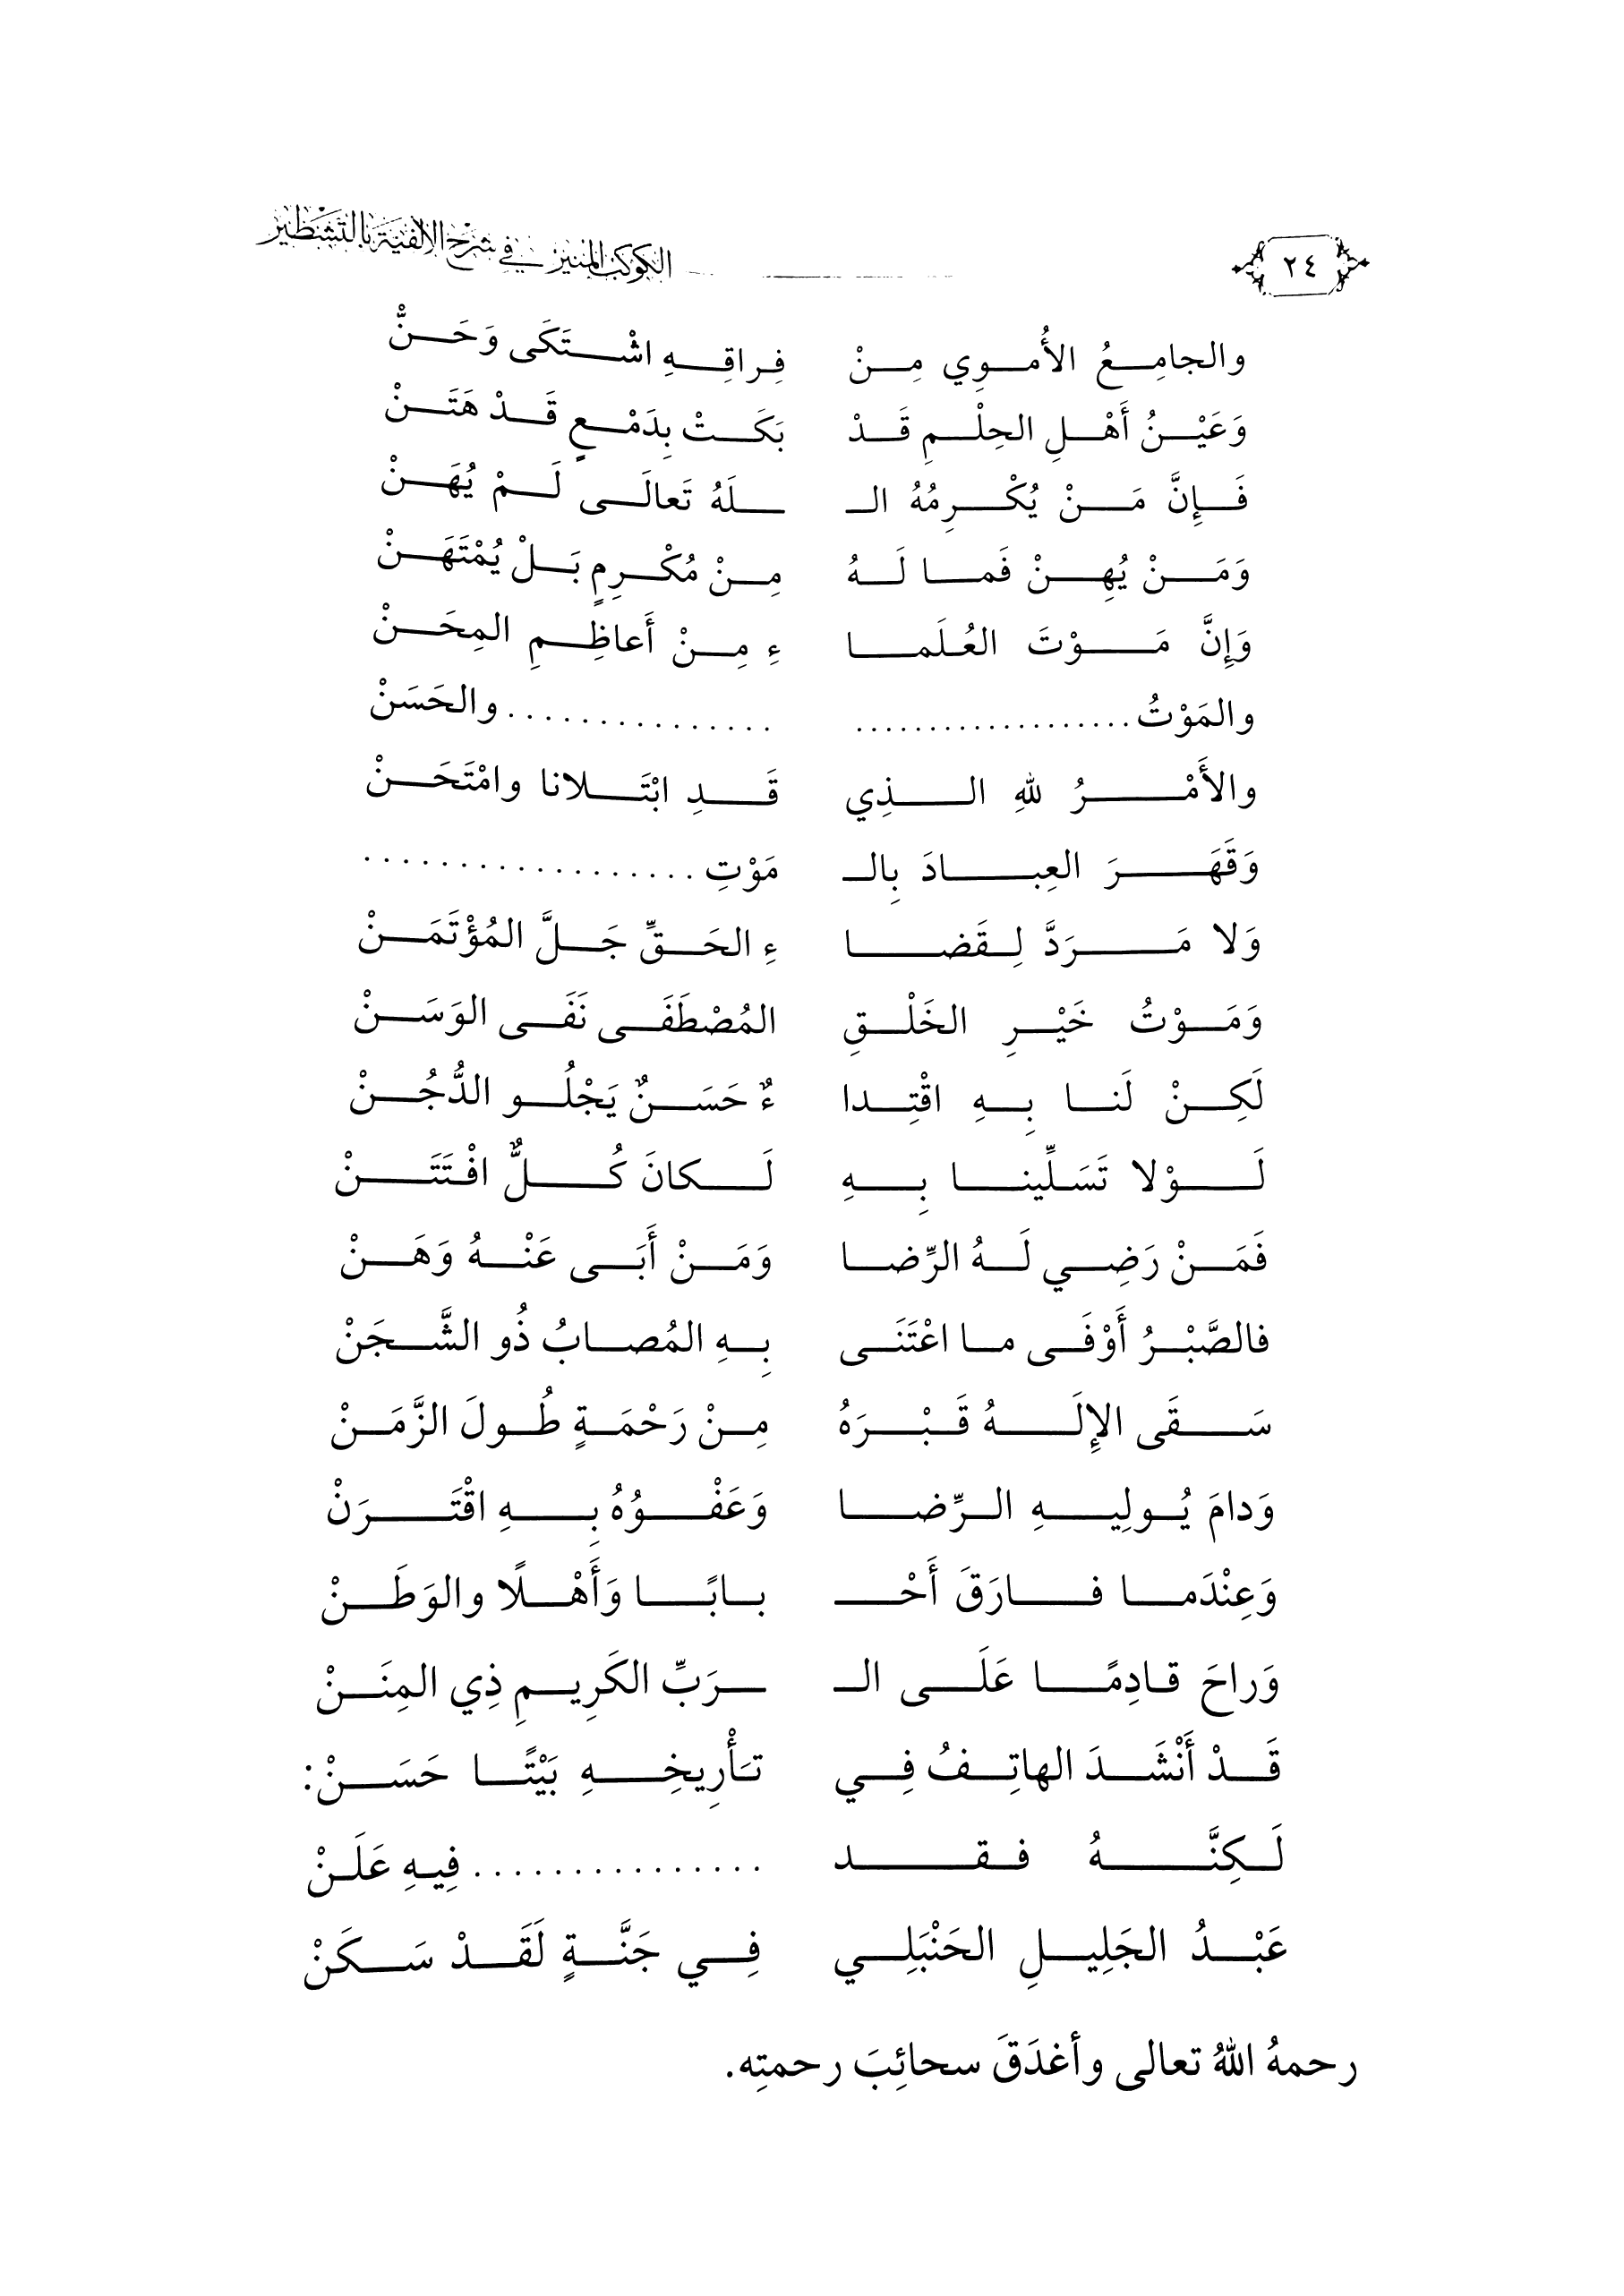 ٢٤ الكوكب المنير في شرح الألفية بالتشطير
والجامِعُ الأُموِي مِنْ فِراقِهِ اشْتَكَى وَحَنّْ
وَعَيْنُ أَهْلِ الحِلْمِ قَدْ بَكَتْ بِدَمْعٍ قَدْ هَتَنْ
فَإِنَّ مَنْ يُكْرِمُهُ الـ ـلَهُ تَعالَى لَمْ يُهَنْ
وَمَنْ يُهِنْ فَما لَهُ مِنْ مُكْرِمٍ بَلْ يُمْتَهَنْ
وَإِنَّ مَوْتَ العُلَما ءِ مِنْ أَعاظِمِ المِحَنْ
والمَوْتُ .................. ............... والحَسَنْ
والأَمْرُ للهِ الذِي قَدِ ابْتَلانا وامْتَحَنْ
وَقَهَرَ العِبادَ بِالـ مَوْتِ ..................
وَلا مَرَدَّ لِقَضا ءِ الحَقِّ جَلَّ المُؤْتَمَنْ
وَمَوْتُ خَيْرِ الخَلْقِ المُصْطَفَى نَفَى الوَسَنْ
لَكِنْ لَنا بِهِ اقْتِدا ءٌ حَسَنٌ يَجْلُو الدُّجُنْ
لَوْلا تَسَلِّينا بِهِ لَكانَ كُلٌّ افْتَتَنْ
فَمَنْ رَضِي لَهُ الرِّضا وَمَنْ أَبَى عَنْهُ وَهَنْ
فالصَّبْرُ أَوْفَى ما اعْتَنَى بِهِ المُصابُ ذُو الشَّجَنْ
سَقَى الإِلَهُ قَبْرَهُ مِنْ رَحْمَةٍ طُولَ الزَّمَنْ
وَدامَ يُولِيهِ الرِّضا وَعَفْوُهُ بِهِ اقْتَرَنْ
وَعِنْدَما فارَقَ أَحْـ ـبابًا وَأَهْلًا والوَطَنْ
وَراحَ قادِمًا عَلَى الـ ـرَبِّ الكَرِيمِ ذِي المِنَنْ
قَدْ أَنْشَدَ الهاتِفُ فِي تَأْرِيخِهِ بَيْتًا حَسَنْ:
لَكِنَّهُ فقد ............... فِيهِ عَلَنْ
عَبْدُ الجَلِيلِ الحَنْبَلِي فِي جَنَّةٍ لَقَدْ سَكَنْ
رحمهُ اللهُ تعالى وأغدَقَ سحائِبَ رحمتِه.